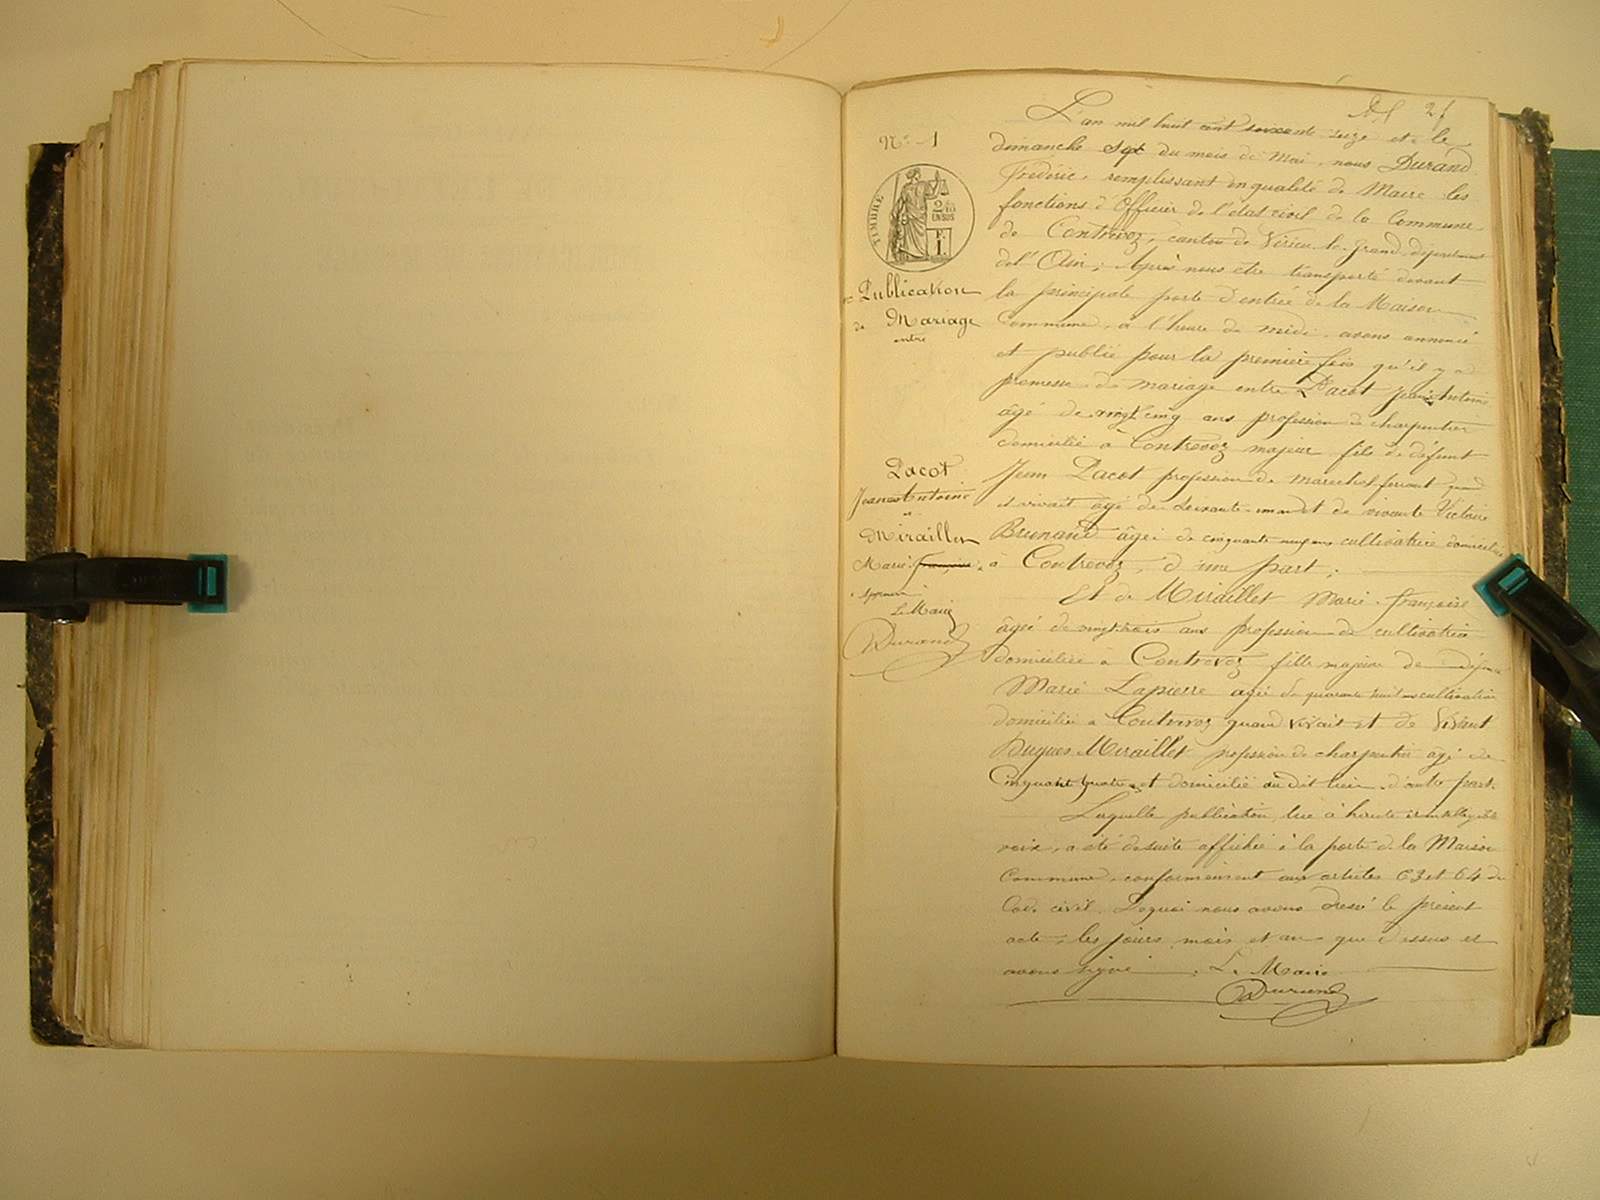 2f
N° 1
TIMBRE
2/10
EN SUS
F.
1.
Publication
de Mariage
entre
Pacot
Jean Antoine
et
Miraillet
Marie françoise
Le Maire
Durand
L'an mil huit cent soixante seize et le
dimanche sept du mois de Mai, nous Durand
Fréderic, remplissant en qualité de Maire les
fonctions d'Officier de l'état civil de la Commune
de Contrevoz, canton de Virieu le grand, département
de l'Ain; Après nous être transporté devant
la principale porte d'entrée de la Maison
Commune, à l'heure de midi avons annoncé
et publié pour la première fois qu'il y a
promesse de mariage entre Pacot Jean Antoine
âgé de vingt cinq ans profession de charpentier
domicilié à Contrevoz majeur fils de défunt
Jean Pacot profession de marechal ferrant quand
il vivait âgé de soixante et de vivante Victoire
Brunand âgée de cinquante neuf ans cultivatrice domiciliée
à Contrevoz, d'une part;
Et de Miraillet Marie françoise
âgée de vingt trois ans profession de cultivatrice
domiciliée à Contrevoz fille majeure de défunte
Marie Lapierre agée de quarante huit ans cultivatrice
domiciliée a Contrevoz quand vivait et de vivant
Hugues Miraillet profession de charpentier agé de
Cinquante quatre et domicilié au dit lieu, d'autre part.
Laquelle publication, lue à haute et intelligible
voix, a été de suite affichée à la porte de la Maison
Commune, conformément aux articles 63 et 64 du
Code civil. De quoi nous avons dressé le présent
acte, les jours, mois et an que dessus et
avons signé. Le Maire
Durand